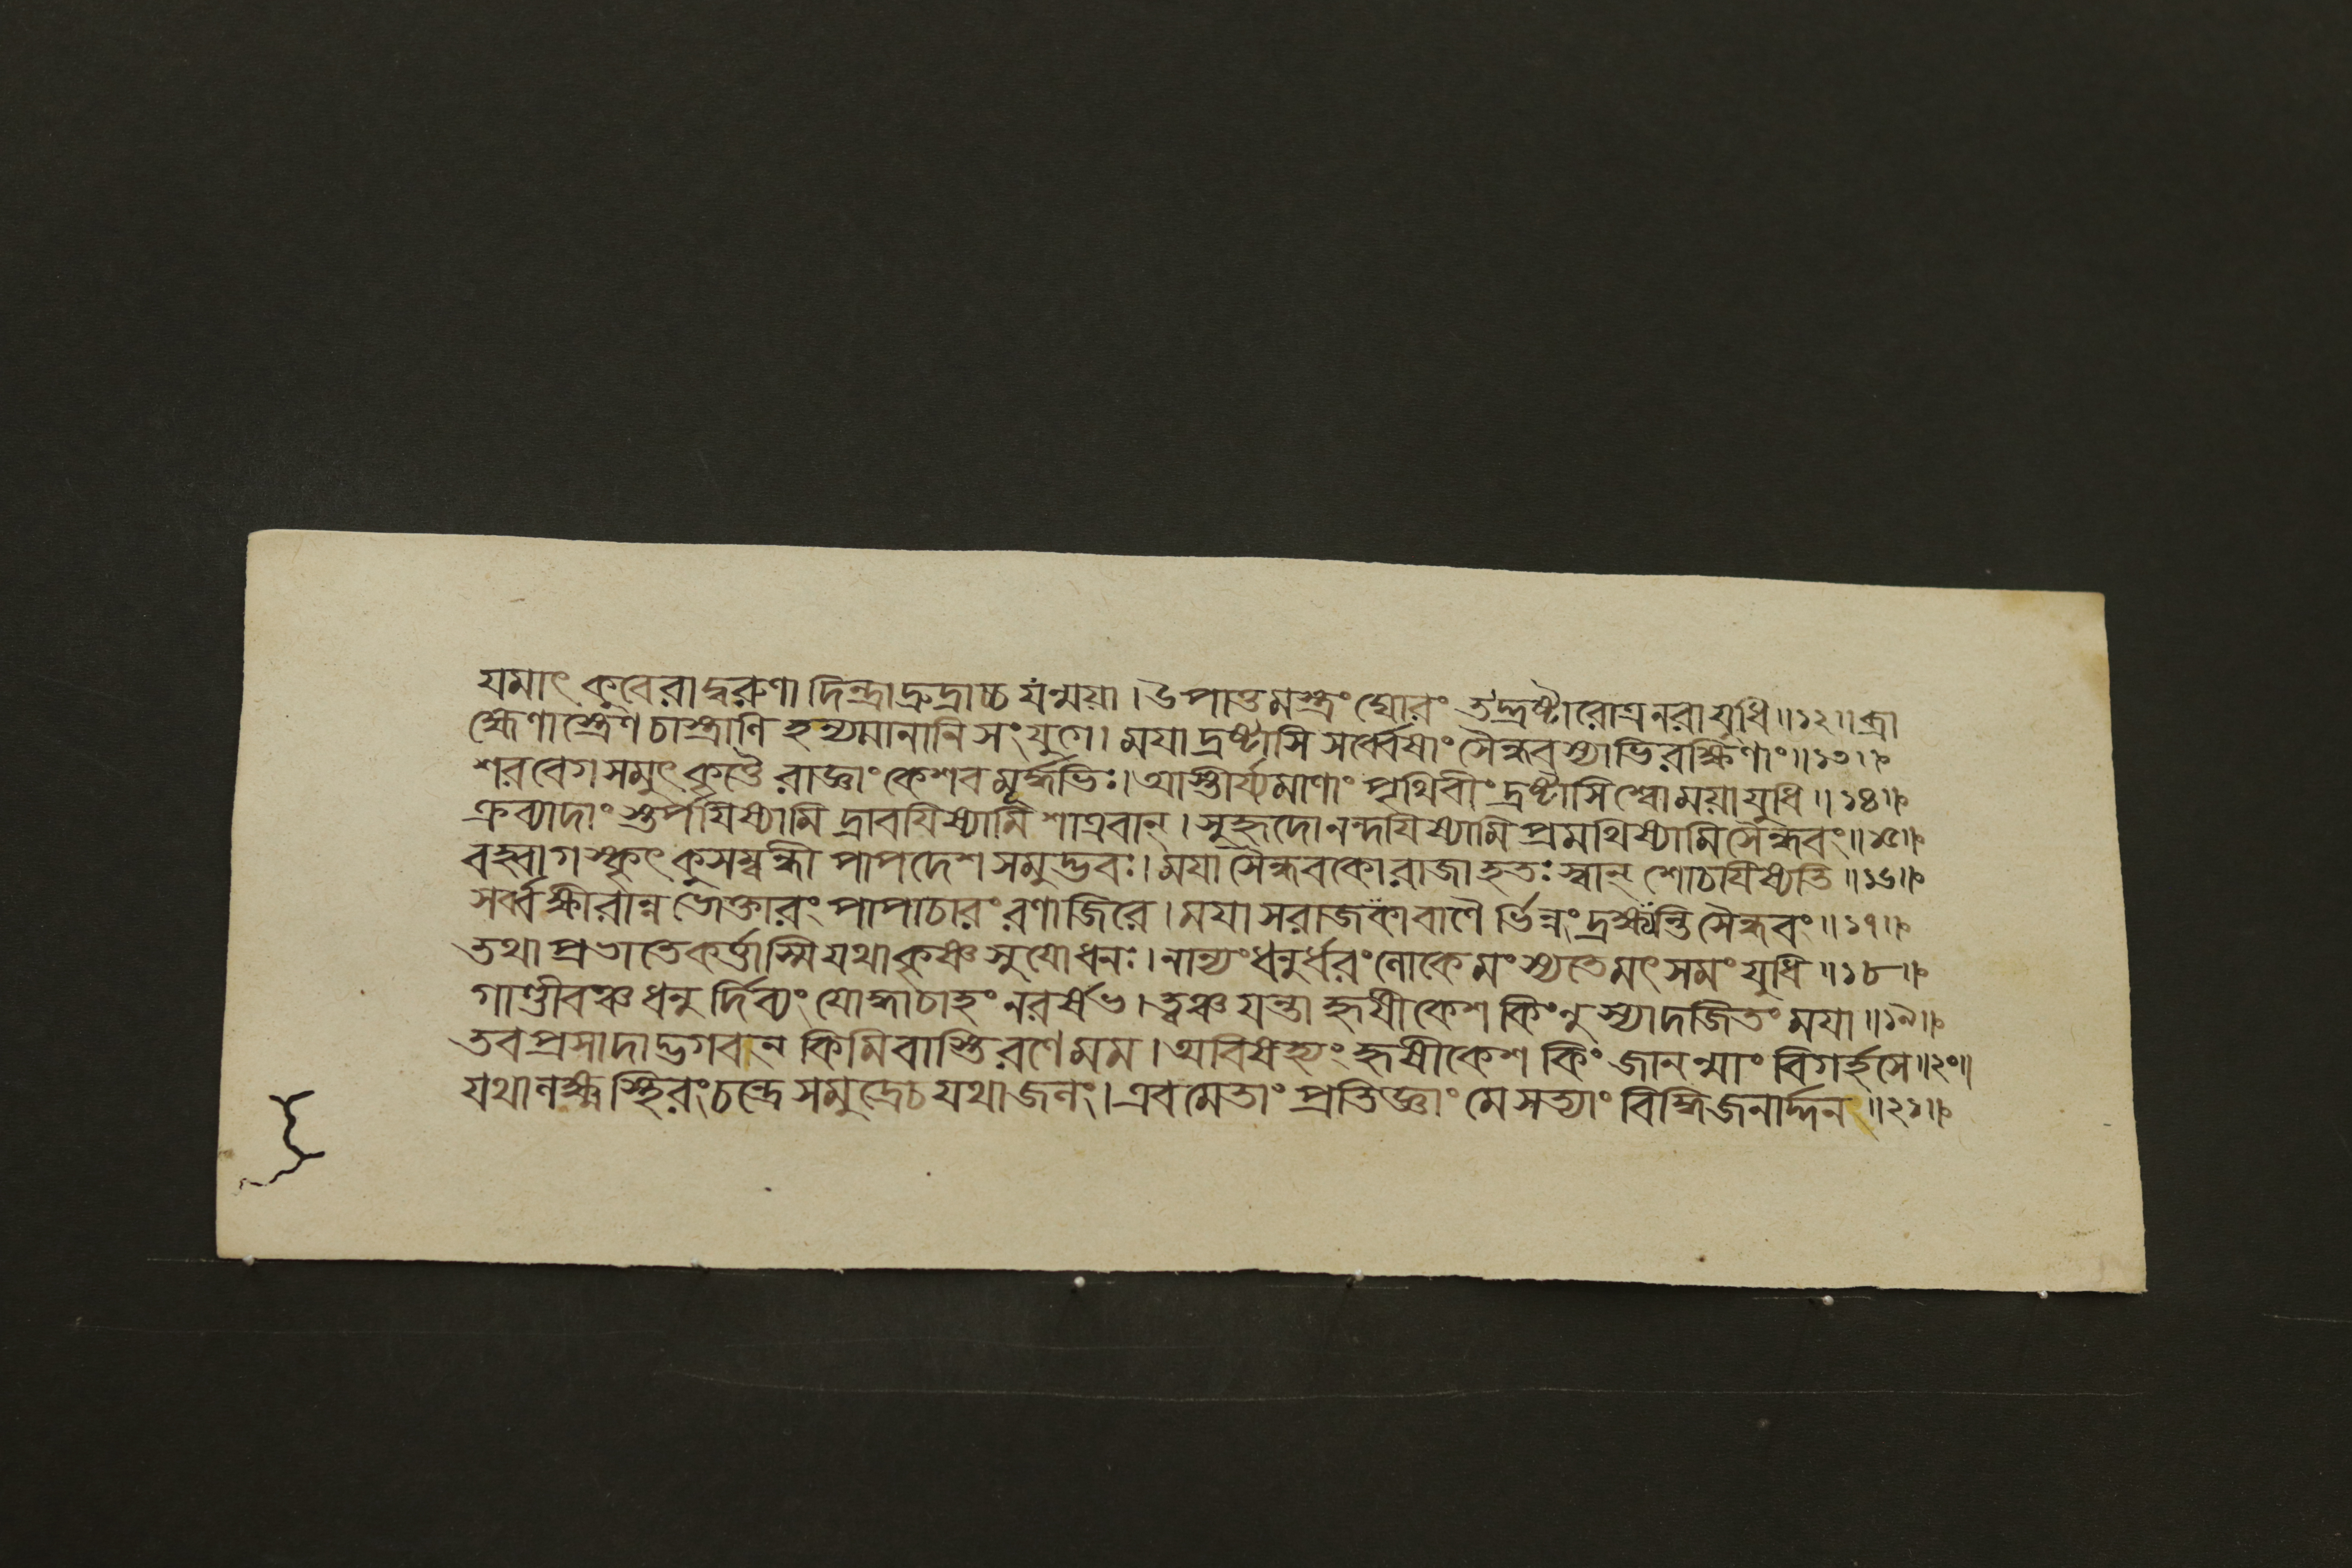 যমাৎ কুবেরাদ্বরুণাদিন্দ্রাদ্রুদ্রাচ্চ যন্ময়া । উপাত্তমস্ত্রং ঘোরং তদ্দ্রষ্টারোত্র নরা যুধি ॥ ১২ ॥ ব্রা
হ্মেণাস্ত্রেণ চাস্ত্রাণি হন্যমানানি সংযুগে । ময়া দ্রষ্টাসি সর্ব্বেষাং সৈন্ধবস্যাভিরক্ষিণাং ॥ ১৩ ॥
শরবেগসমুৎকৃত্তৈ রাজ্ঞাং কেশব মূর্দ্ধভিঃ । আস্তীর্য্যমাণাং পৃথিবীং দ্রষ্টাসি শ্বো ময়া যুধি ॥ ১৪ ॥
ক্রব্যাদাংস্তর্পয়িষ্যামি দ্রাবয়িষ্যামি শাত্রবান্ । সুহৃদো নন্দয়িষ্যামি প্রমথিষ্যামি সৈন্ধবং ॥ ১৫ ॥
বহ্বাগস্কৃৎ কুসম্বন্ধী পাপদেশসমুদ্ভবঃ । ময়া সৈন্ধবকো রাজা হতঃ স্বান্ শোচয়িষ্যতি ॥ ১৬ ॥
সর্ব্বক্ষীরান্নভোক্তারং পাপাচারং রণাজিরে । ময়া সরাজকা বাণৈর্ভিন্নং দ্রক্ষ্যন্তি সৈন্ধবং ॥ ১৭ ॥
তথা প্রভাতে কর্ত্তাস্মি যথা কৃষ্ণ সুযোধনঃ । নান্যং ধনুর্ধরং লোকে মংস্যতে মৎসমং যুধি ॥ ১৮ ॥
গাণ্ডীবঞ্চ ধনুর্দিব্যং যোদ্ধা চাহং নরর্ষভ । ত্বঞ্চ যন্তা হৃষীকেশ কিং নু স্যাদজিতং ময়া ॥ ১৯ ॥
তব প্রসাদাদ্ভগবান কিমিবাস্তি রণে মম । অবিষহ্যং হৃষীকেশ কিং জানন্মাং বিগর্হসে ॥ ২০ ॥
যথা লক্ষ্ম স্থিরং চন্দ্রে সমুদ্রে চ যথা জলং । এবমেতাং প্রতিজ্ঞাং মে সত্যাং বিদ্ধি জনার্দ্দন ॥ ২১ ॥